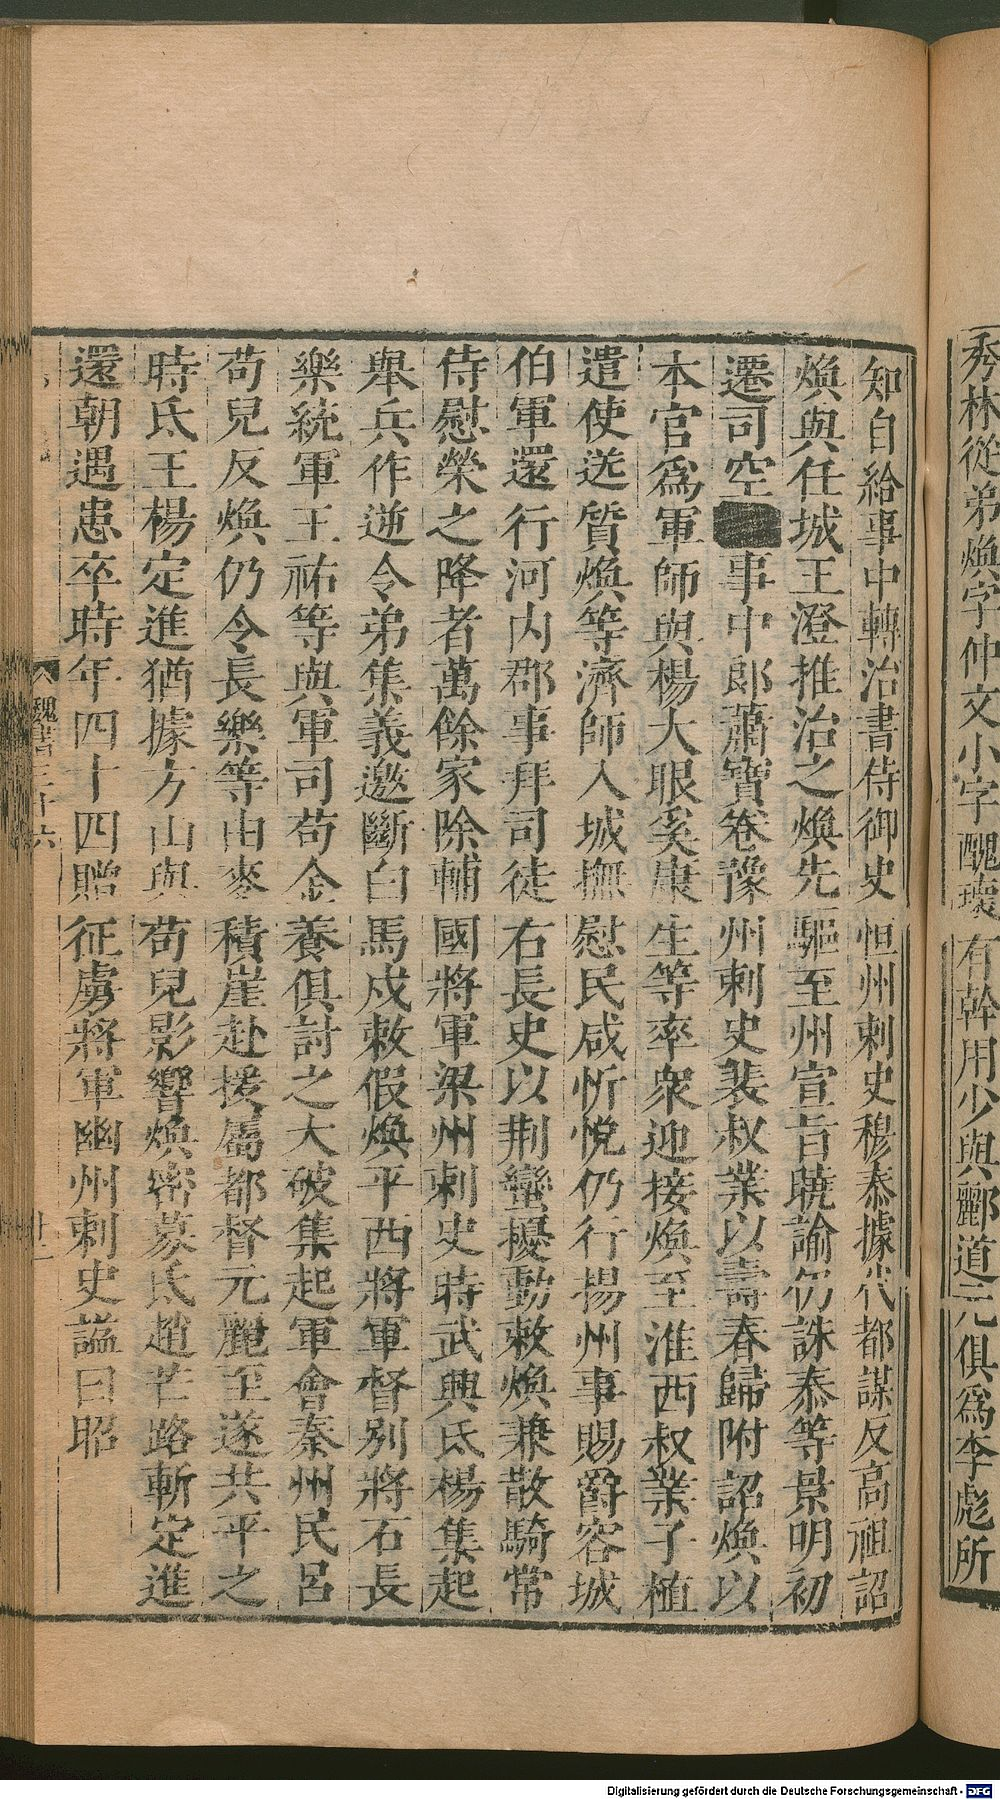 秀林從弟煥字仲文小字醜瓌有幹用少與酈道元俱爲李彪所
知自給事中轉治書侍御史恒州刺史穆泰據代都謀反高祖詔
煥與任城王澄推治之煥先驅至州宣旨曉諭仍誅泰等景明初
遷司空事中郎蕭寶卷豫州刺史裴叔業以壽春歸附詔煥以
本官爲軍師與楊大眼奚康生等率衆迎接煥至淮西叔業子植
遣使送質煥等濟師入城撫慰民咸忻悅仍行揚州事賜爵容城
伯軍還行河内郡事拜司徒右長史以荆蠻擾動敕煥兼散騎常
侍慰榮之降者萬餘家除輔國將軍梁州刺史時武興氐楊集起
舉兵作逆令弟集義邀斷白馬戍敕假煥平西將軍督别將石長
樂統軍王祐等與軍司苟金養俱討之大破集起軍會秦州民呂
苟兒反煥仍令長樂等由麥積崖赴援屬都督元麗至遂共平之
時氐王楊定進猶據方山與苟兒影響煥密募氐趙芒路斬定進
還朝遇患卒時年四十四贈征虜將軍幽州刺史諡曰昭
魏書三十六
廿一
Digitalisierung gefördert durch die Deutsche Forschungsgemeinschaft - DFG